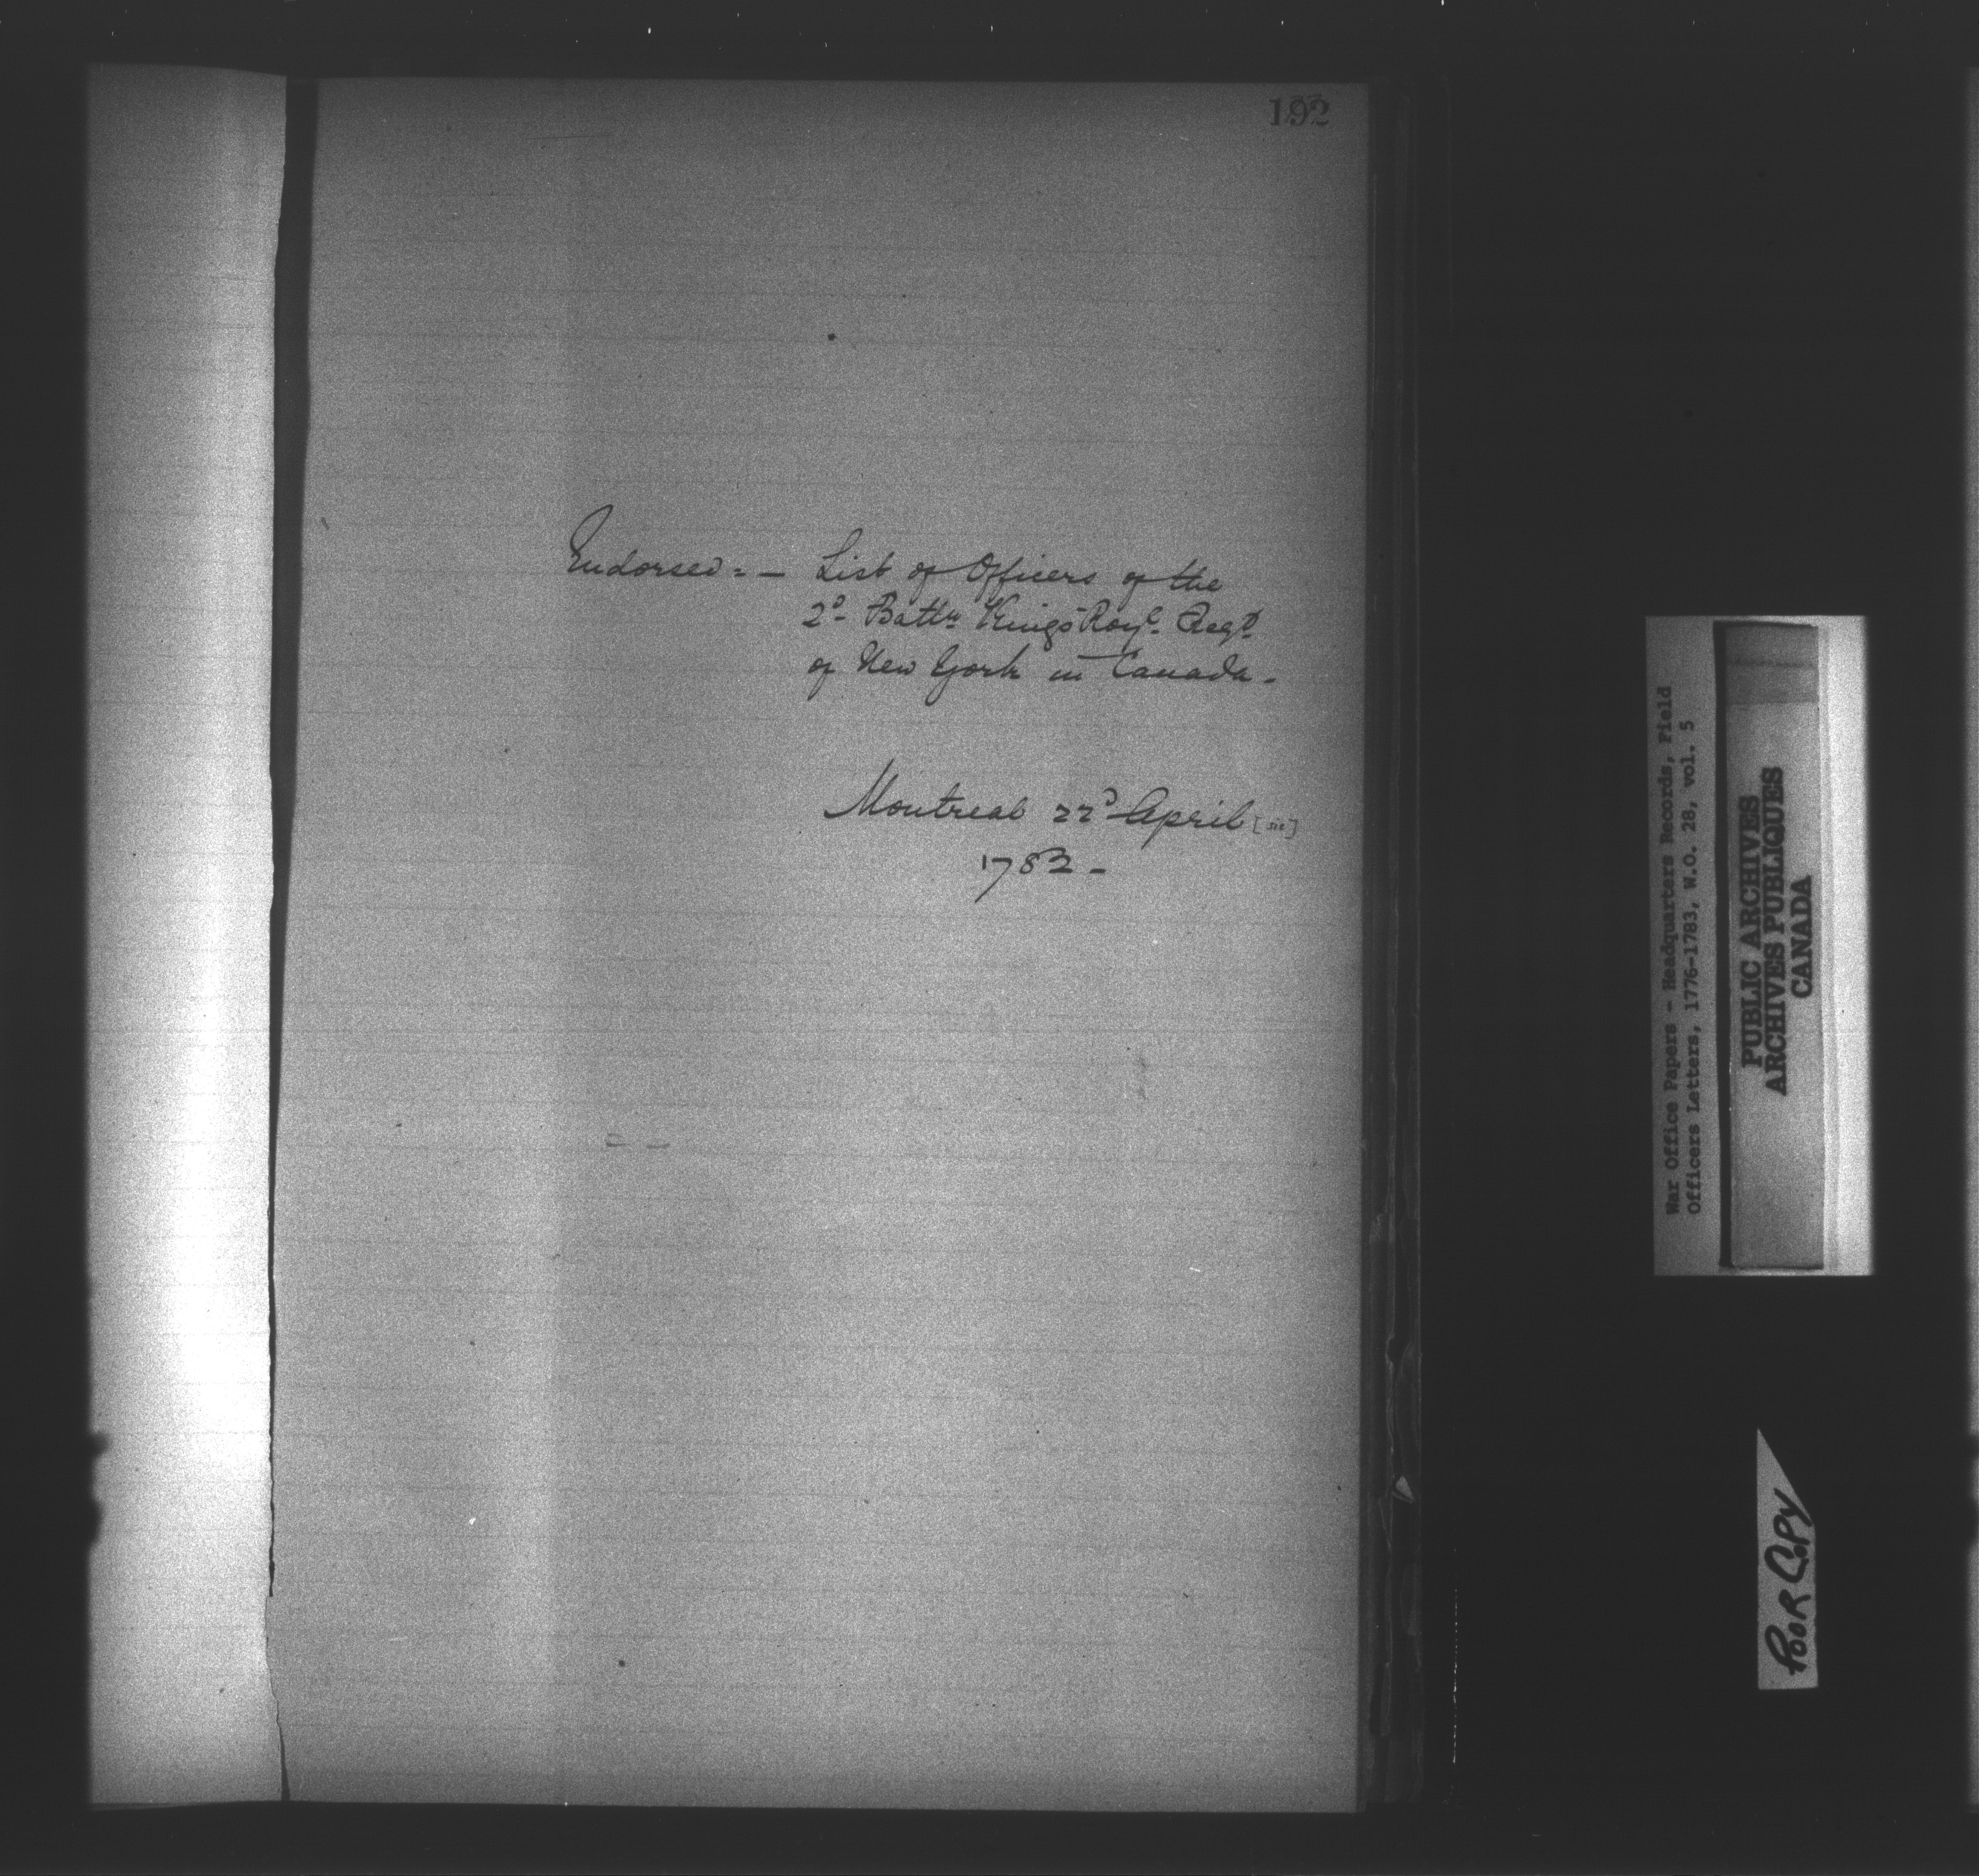 192
Endorsed:- List of Officers of the
2d Battn Kings Royl Regt
of New York in Canada.
Montreal 22d April [sic]
1782 -
War Office Papers - Headquarters Records, Field
Officers Letters, 1776-1783, W.O. 28, vol. 5
PUBLIC ARCHIVES
ARCHIVES PUBLIQUES
CANADA
POOR COPY